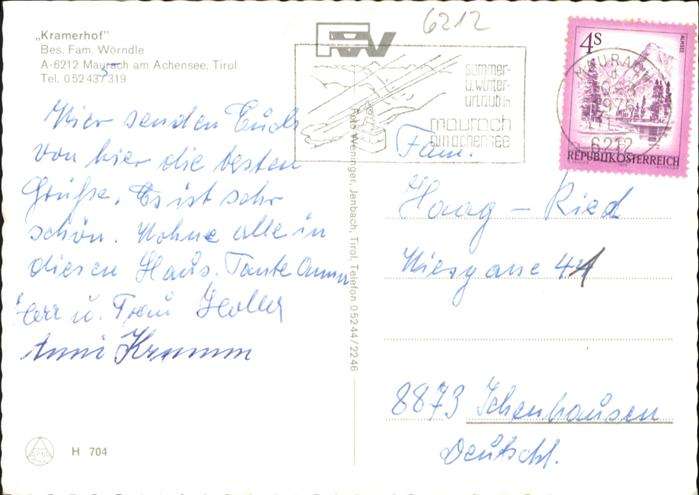 „Kramerhof"
Bes. Fam. Wörndle
A-6212 Maurach am Achensee, Tirol
Tel. 05243/319
6212
sommer-
u. winter-
urlaub in
maurach
am achensee
4s
ALMSEE
MAURACH
6212
REPUBLIK ÖSTERREICH
Wir senden Euch
von hier die besten
Grüße. Es ist sehr
schön. Wohne alle in
diesen Haus. Tante Anni
Herr u. Frau
Anni Kramm
Foto Weninger, Jenbach, Tirol, Telefon 05244/2246
Fam.
Haag - Ried
8873 Ichenhausen
Deutschl.
H 704